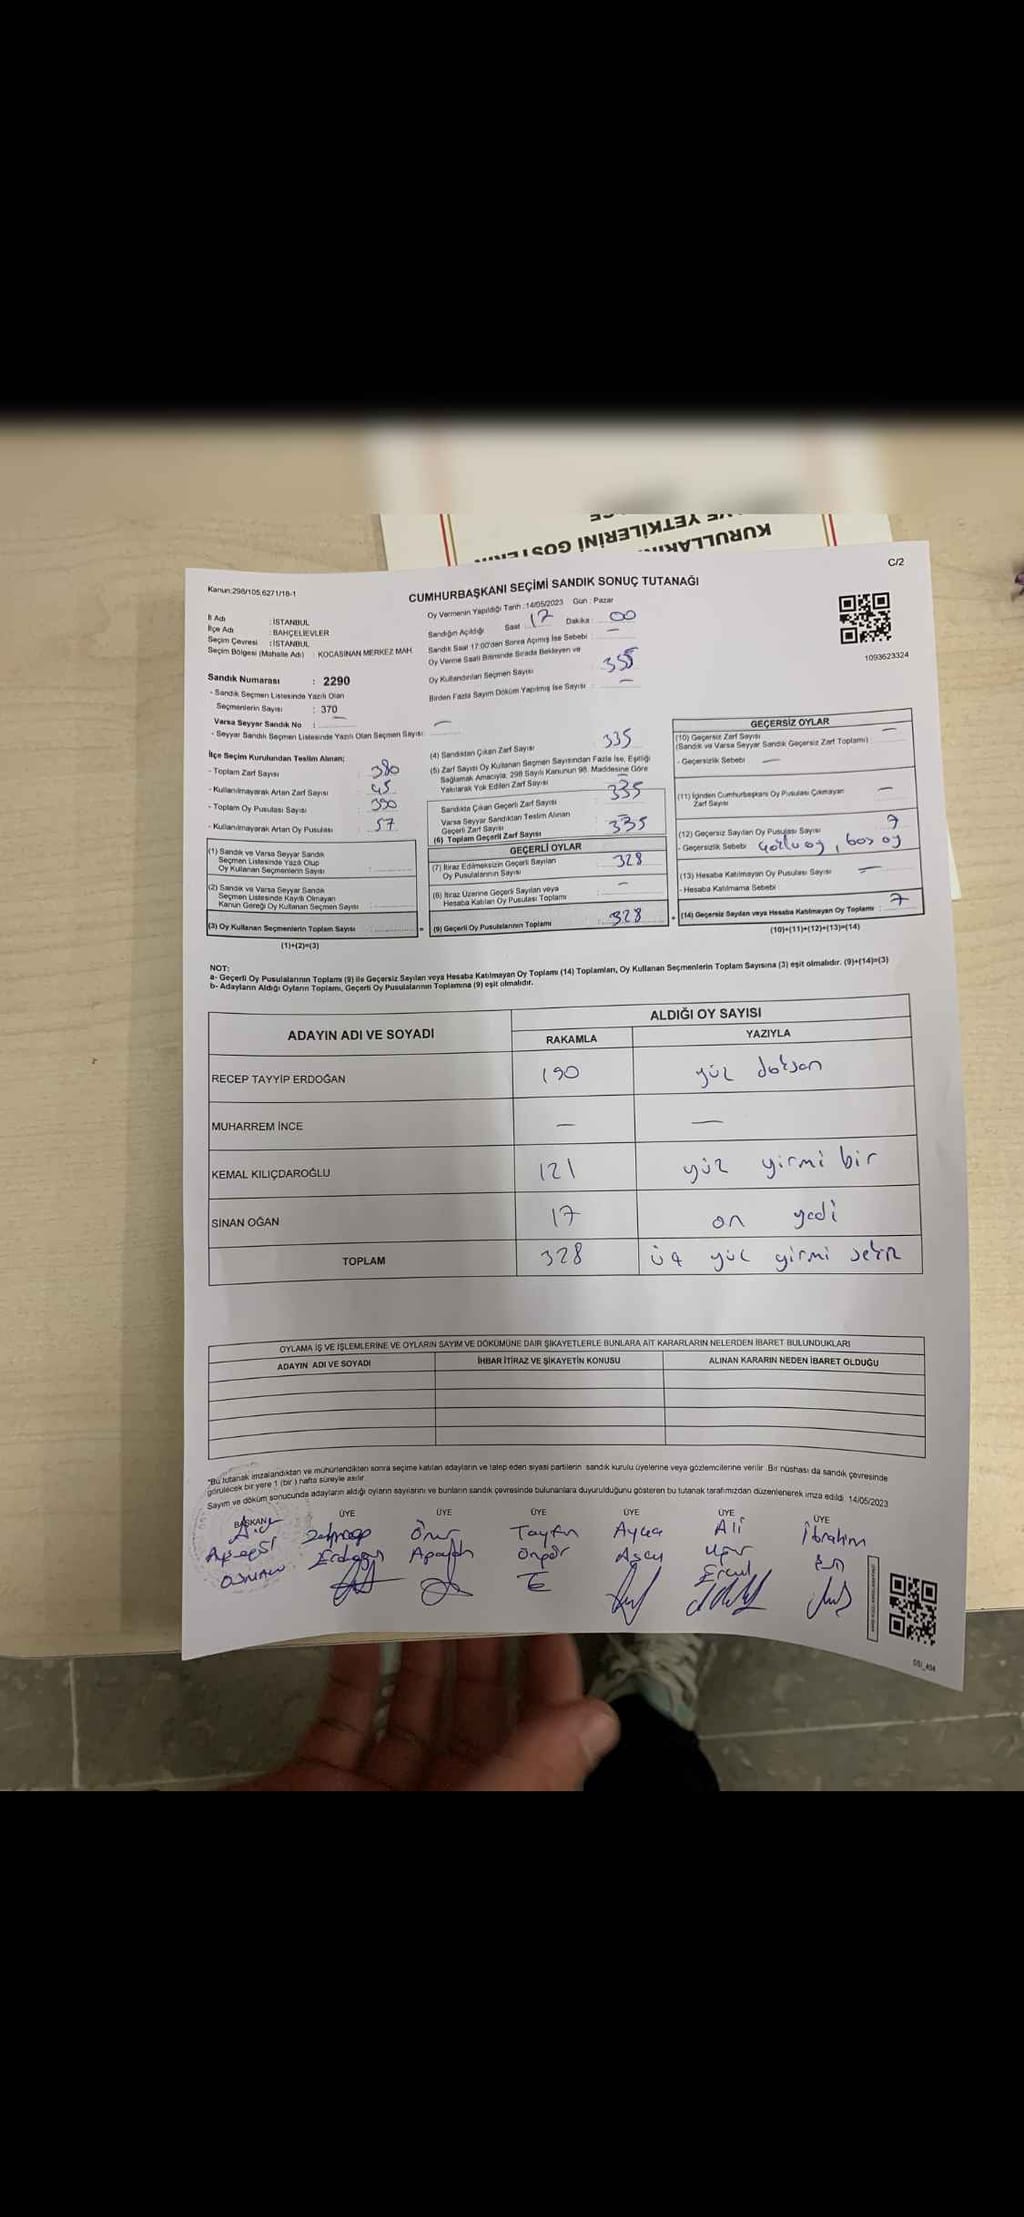 KURULLARI
VE YETKİLERİNİ
C/2
Kanun:298/105,6271/18-1
CUMHURBAŞKANI SEÇİMİ SANDIK SONUÇ TUTANAĞI
Oy Vermenin Yapıldığı Tarih :14/05/2023 Gün : Pazar
İl Adı : İSTANBUL
İlçe Adı : BAHÇELİEVLER
Seçim Çevresi : İSTANBUL
Seçim Bölgesi (Mahalle Adı) : KOCASİNAN MERKEZ MAH.
Sandığın Açıldığı Saat : 17 Dakika : 00
Sandık Saat 17:00'den Sonra Açılmış İse Sebebi : —
Oy Verme Saati Bitiminde Sırada Bekleyen ve
Oy Kullandırılan Seçmen Sayısı : 355
Birden Fazla Sayım Döküm Yapılmış İse Sayısı : —
1093623324
Sandık Numarası : 2290
- Sandık Seçmen Listesinde Yazılı Olan
Seçmenlerin Sayısı : 370
Varsa Seyyar Sandık No : —
- Seyyar Sandık Seçmen Listesinde Yazılı Olan Seçmen Sayısı : —
İlçe Seçim Kurulundan Teslim Alınan;
- Toplam Zarf Sayısı : 380
- Kullanılmayarak Artan Zarf Sayısı : 45
- Toplam Oy Pusulası Sayısı : 390
- Kullanılmayarak Artan Oy Pusulası : 57
(1) Sandık ve Varsa Seyyar Sandık
Seçmen Listesinde Yazılı Olup
Oy Kullanan Seçmenlerin Sayısı :
(2) Sandık ve Varsa Seyyar Sandık
Seçmen Listesinde Kayıtlı Olmayan
Kanun Gereği Oy Kullanan Seçmen Sayısı :
(3) Oy Kullanan Seçmenlerin Toplam Sayısı :
(1)+(2)=(3)
(4) Sandıktan Çıkan Zarf Sayısı : 335
(5) Zarf Sayısı Oy Kullanan Seçmen Sayısından Fazla İse, Eşitliği
Sağlamak Amacıyla, 298 Sayılı Kanunun 98. Maddesine Göre
Yakılarak Yok Edilen Zarf Sayısı : —
Sandıkta Çıkan Geçerli Zarf Sayısı : 335
Varsa Seyyar Sandıktan Teslim Alınan
Geçerli Zarf Sayısı
(6) Toplam Geçerli Zarf Sayısı : 335
GEÇERLİ OYLAR
(7) İtiraz Edilmeksizin Geçerli Sayılan
Oy Pusulalarının Sayısı : 328
(8) İtiraz Üzerine Geçerli Sayılan veya
Hesaba Katılan Oy Pusulası Toplamı : —
(9) Geçerli Oy Pusulalarının Toplamı : 328
GEÇERSİZ OYLAR
(10) Geçersiz Zarf Sayısı : —
(Sandık ve Varsa Seyyar Sandık Geçersiz Zarf Toplamı)
- Geçersizlik Sebebi : —
(11) İçinden Cumhurbaşkanı Oy Pusulası Çıkmayan : —
Zarf Sayısı
(12) Geçersiz Sayılan Oy Pusulası Sayısı : 7
- Geçersizlik Sebebi : oy, boş oy
(13) Hesaba Katılmayan Oy Pusulası Sayısı : —
- Hesaba Katılmama Sebebi :
(14) Geçersiz Sayılan veya Hesaba Katılmayan Oy Toplamı : 7
(10)+(11)+(12)+(13)=(14)
NOT:
a- Geçerli Oy Pusulalarının Toplamı (9) ile Geçersiz Sayılan veya Hesaba Katılmayan Oy Toplamı (14) Toplamları, Oy Kullanan Seçmenlerin Toplam Sayısına (3) eşit olmalıdır. (9)+(14)=(3)
b- Adayların Aldığı Oyların Toplamı, Geçerli Oy Pusulalarının Toplamına (9) eşit olmalıdır.
ADAYIN ADI VE SOYADI
ALDIĞI OY SAYISI
RAKAMLA YAZIYLA
RECEP TAYYİP ERDOĞAN 190 yüz doksan
MUHARREM İNCE — —
KEMAL KILIÇDAROĞLU 121 yüz yirmi bir
SİNAN OĞAN 17 on yedi
TOPLAM 328 üç yüz yirmi sekiz
OYLAMA İŞ VE İŞLEMLERİNE VE OYLARIN SAYIM VE DÖKÜMÜNE DAİR ŞİKAYETLERLE BUNLARA AİT KARARLARIN NELERDEN İBARET BULUNDUKLARI
ADAYIN ADI VE SOYADI İHBAR İTİRAZ VE ŞİKAYETİN KONUSU ALINAN KARARIN NEDEN İBARET OLDUĞU
"Bu tutanak imzalandıktan ve mühürlendikten sonra seçime katılan adayların ve talep eden siyasi partilerin sandık kurulu üyelerine veya gözlemcilerine verilir. Bir nüshası da sandık çevresinde
görülecek bir yere 1 (bir) hafta süreyle asılır.
Sayım ve döküm sonucunda adayların aldığı oyların sayılarını ve bunların sandık çevresinde bulunanlara duyurulduğunu gösteren bu tutanak tarafımızdan düzenlenerek imza edildi. 14/05/2023
BAŞKAN ÜYE ÜYE ÜYE ÜYE ÜYE ÜYE
Onur Tayfun Ayça Ali İbrahim
OSMAN Erdoğan Uğur